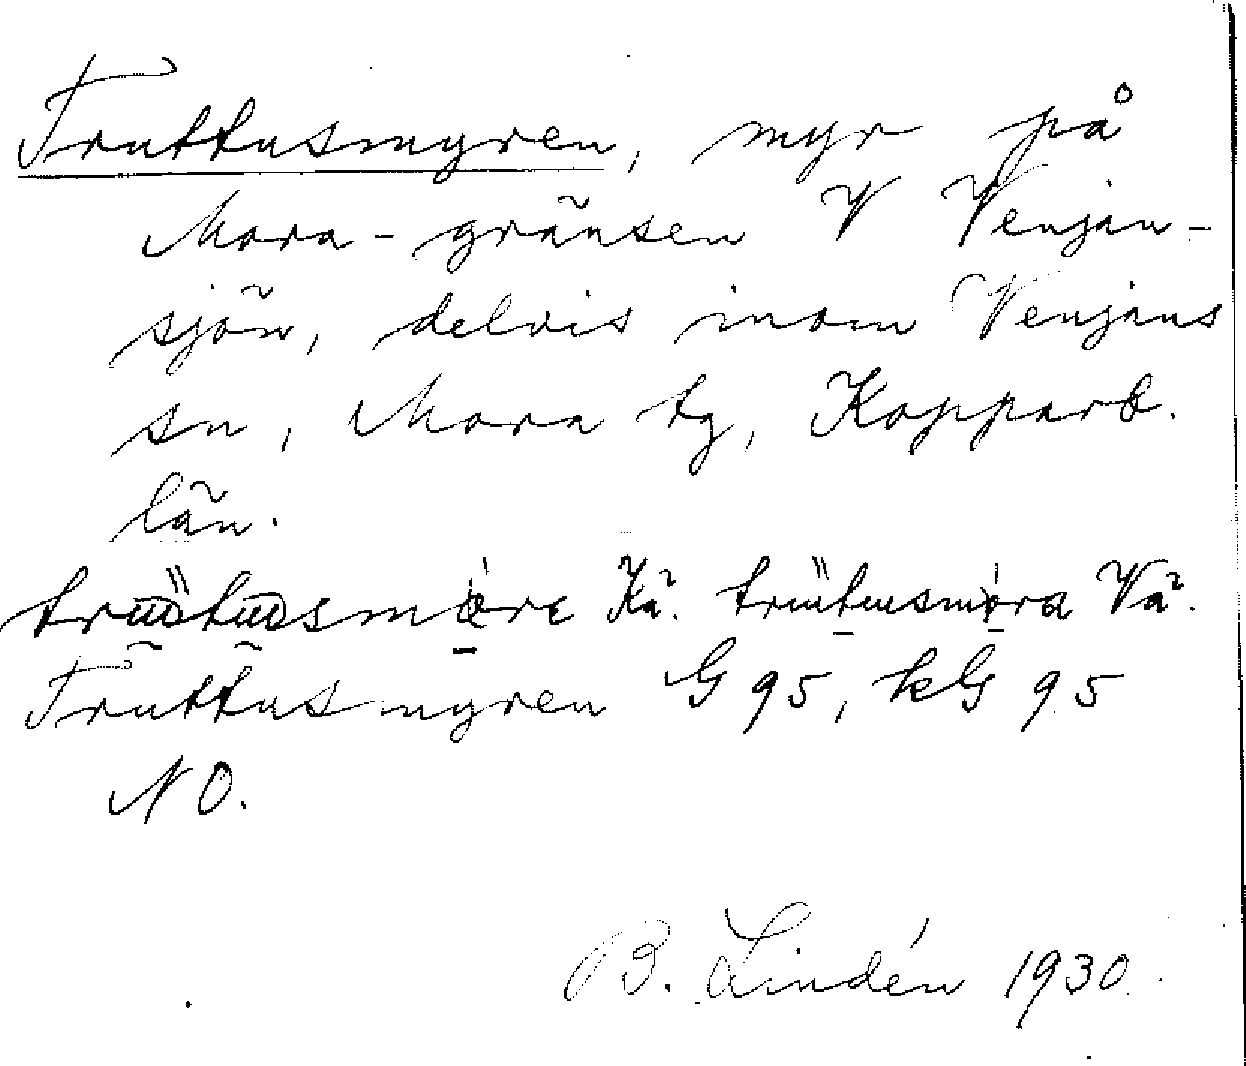 Truttusmyren, myr på
Mora-gränsen V Venjan-
sjön, delvis inom Venjans
sn, Mora tg, Kopparb.
län.
Kä. Vä.
Truttusmyren G 95, kG 95
NO.
B. Lindén 1930.